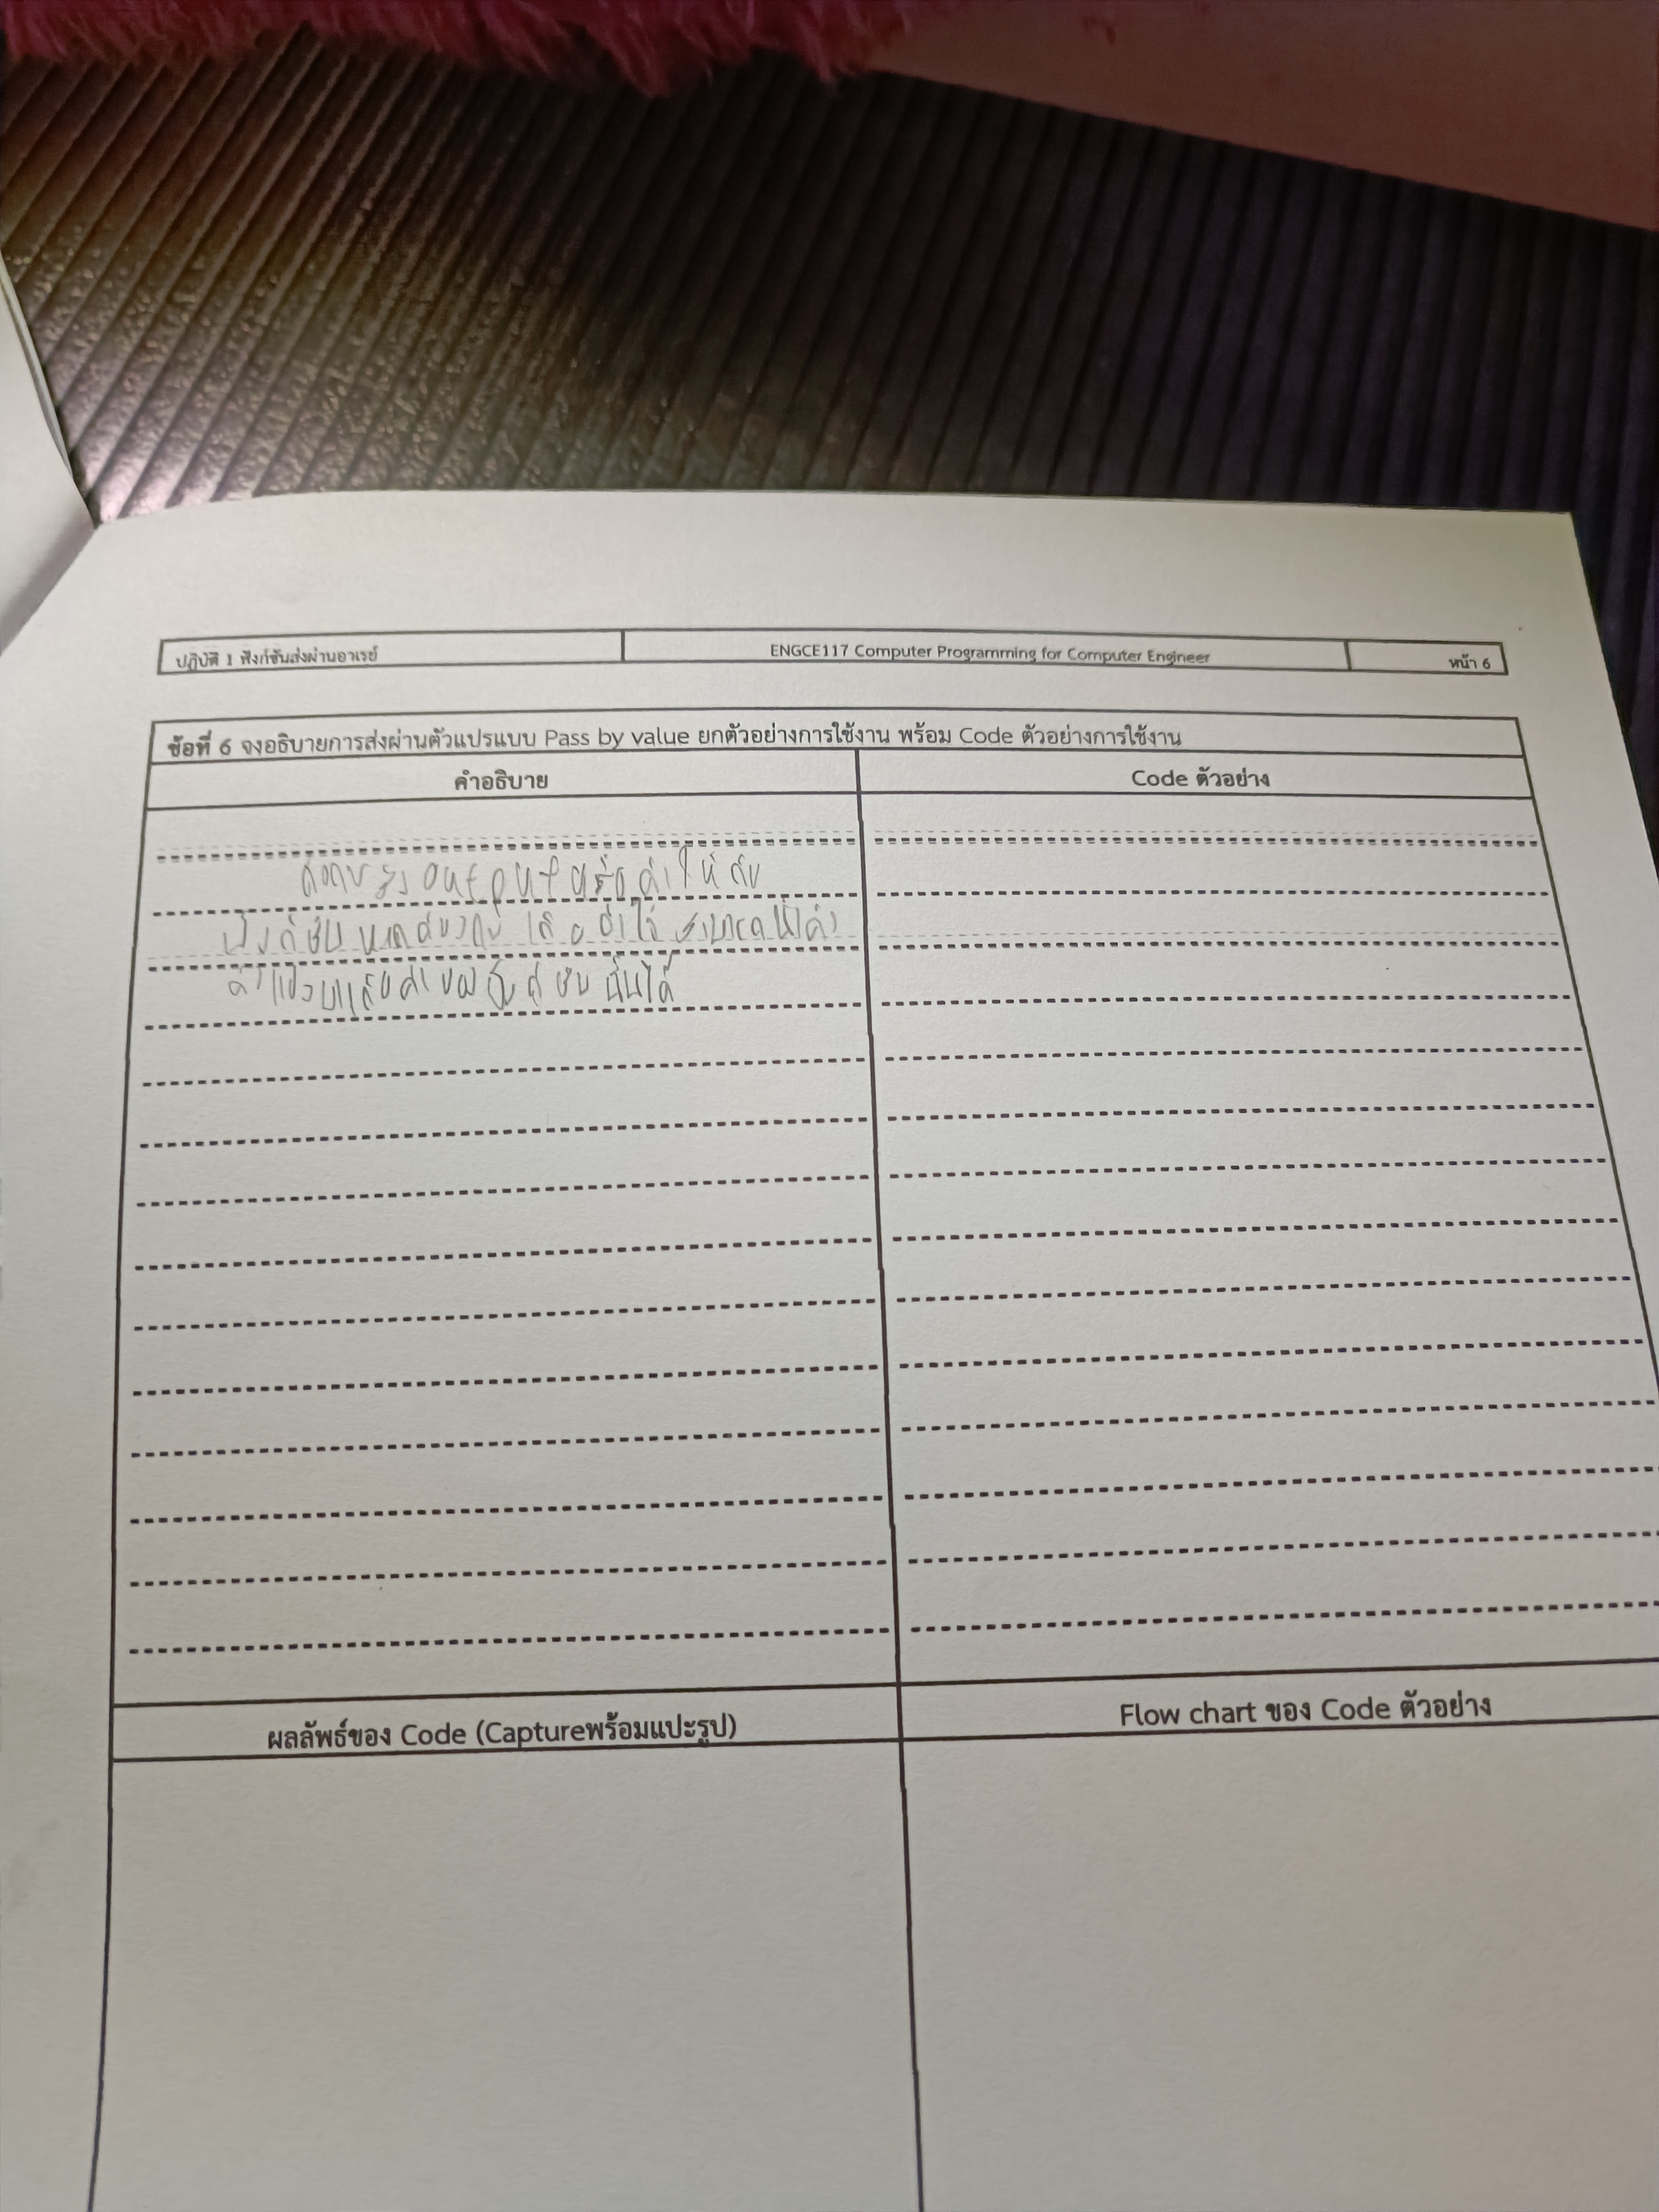 ปฏิบัติ 1 ฟังก์ชันส่งผ่านอาเรย์
ENGCE117 Computer Programming for Computer Engineer
หน้า 6
ข้อที่ 6 จงอธิบายการส่งผ่านตัวแปรแบบ Pass by value ยกตัวอย่างการใช้งาน พร้อม Code ตัวอย่างการใช้งาน
คำอธิบาย
Code ตัวอย่าง
output หรือ ค่าให้กับ
ฟังก์ชัน
ค่าของฟังก์ชันนั้นได้
ผลลัพธ์ของ Code (Captureพร้อมแปะรูป)
Flow chart ของ Code ตัวอย่าง